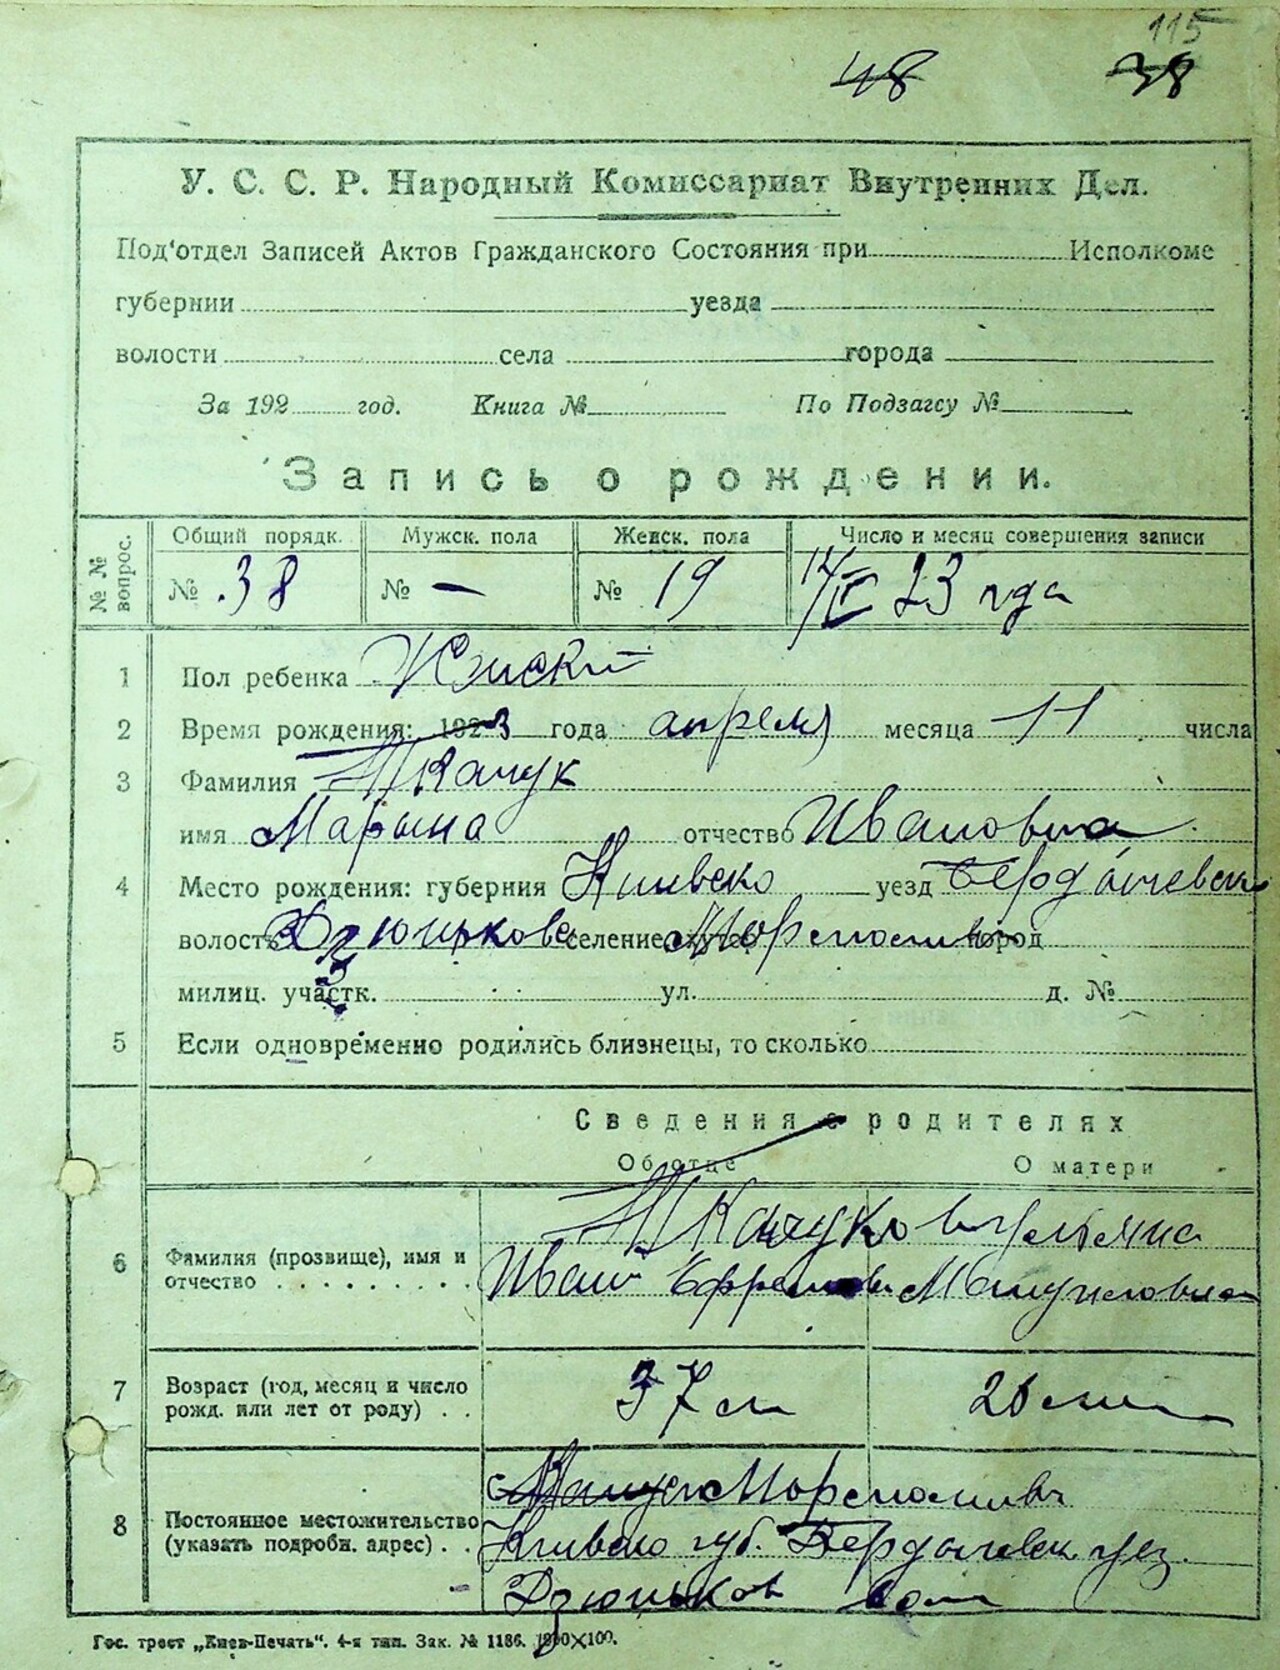 115
48 38
У. С. С. Р. Народный Комиссариат Внутренних Дел.
Под'отдел Записей Актов Гражданского Состояния при Исполкоме
губернии уезда
волости села города
За 192 год. Книга № По Подзагсу №
Запись о рождении.
№ № вопрос.
Общий порядк. Мужск. пола Женск. пола Число и месяц совершения записи
№ 38 № — № 19 12/IV 23 года
1 Пол ребенка Женский
2 Время рождения: 1923 года апреля месяца 11 числа
3 Фамилия Ткачук
имя Марына отчество Ивановна
4 Место рождения: губерния Киевско уезд Бердичевск
волость Дзюньков селение, хутор город
милиц. участк. 3 ул. д. №
5 Если одновременно родились близнецы, то сколько
Сведения о родителях
Об отце О матери
6 Фамилия (прозвище), имя и отчество
Ткачуко Ульяна
Иван Ефремов
7 Возраст (год, месяц и число рожд. или лет от роду)
37 л
8 Постоянное местожительство (указать подробн. адрес)
Киевско губ. Бердичевск. уез.
Дзюньков вол
Гос. трест „Киев-Печать“. 4-я тип. Зак. № 1186. 1900×100.